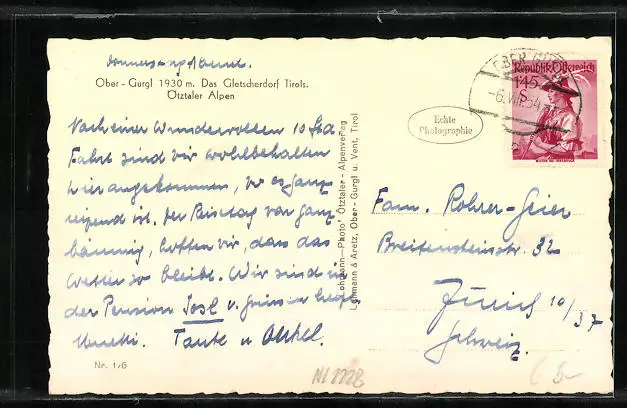 Donnerstagabend.
Ober - Gurgl 1930 m. Das Gletscherdorf Tirols.
Ötztaler Alpen
Nach einer wundervollen 10 Std
Fahrt sind wir wohlbehalten
hier angekommen, wo es ganz
reizend ist. Der Reisetag war ganz
hoffen wir, dass das
Wetter so bleibt. Wir sind in
der Pension Josl u. grüssen
Tante u. Onkel.
Nr. 1/6
Lohmann-Photo Ötztaler - Alpenverlag
Lohmann & Aretz, Ober-Gurgl u. Vent, Tirol
Echte
Photographie
OBER GURGL
-6.VIII.54
Republik Österreich
1'45
S
Fam. Rohrer-Geier
Breitensteinstr. 32
Zürich 10/37
Schweiz.